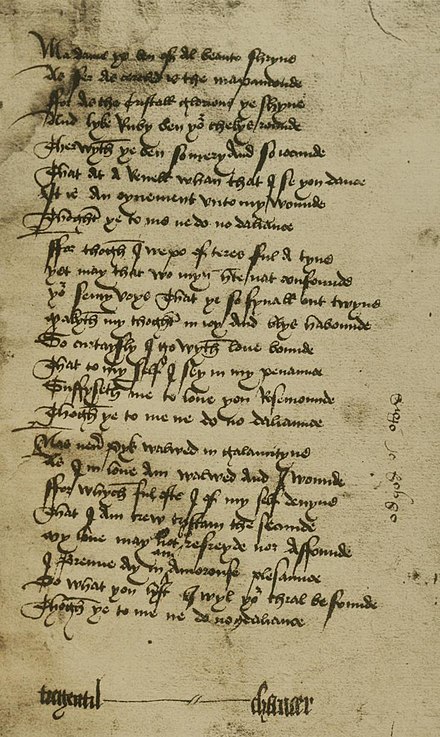 Madame ye ben of al beaute shryne
As fer as cercled is the mapamounde
ffor as the Cristall glorious ye shyne
And lyke Ruby ben yor chekys rounde
Therwyth ye ben so mery and so iocunde
That at a Reuell whan that I se you dance
It is an oynement vnto my wounde
Thoght ye to me ne do no daliance
ffor thogh I wepe of teres ful a tyne
yet may that wo myn hte nat confounde
yor semy voys that ye so smal out twyne
Makyth my thoght in ioy and blys habounde
So curtaysly I go wyth loue bounde
That to my self I sey in my penaunce
Suffyseth me to loue you Rosemounde
Thogh ye to me ne do no daliaunce
Nas neu pyk walwed in galauntyne
As I in loue am walwed and I wounde
ffor whych ful ofte I of my self deuyne
That I am trew Tristam the secunde
My loue may not refreyde nor affounde
I brenne ay in an amorouse plesaunce
Do what you lyst I wyl yor thral be founde
Thogh ye to me ne do no daliance
tregentil chaucer